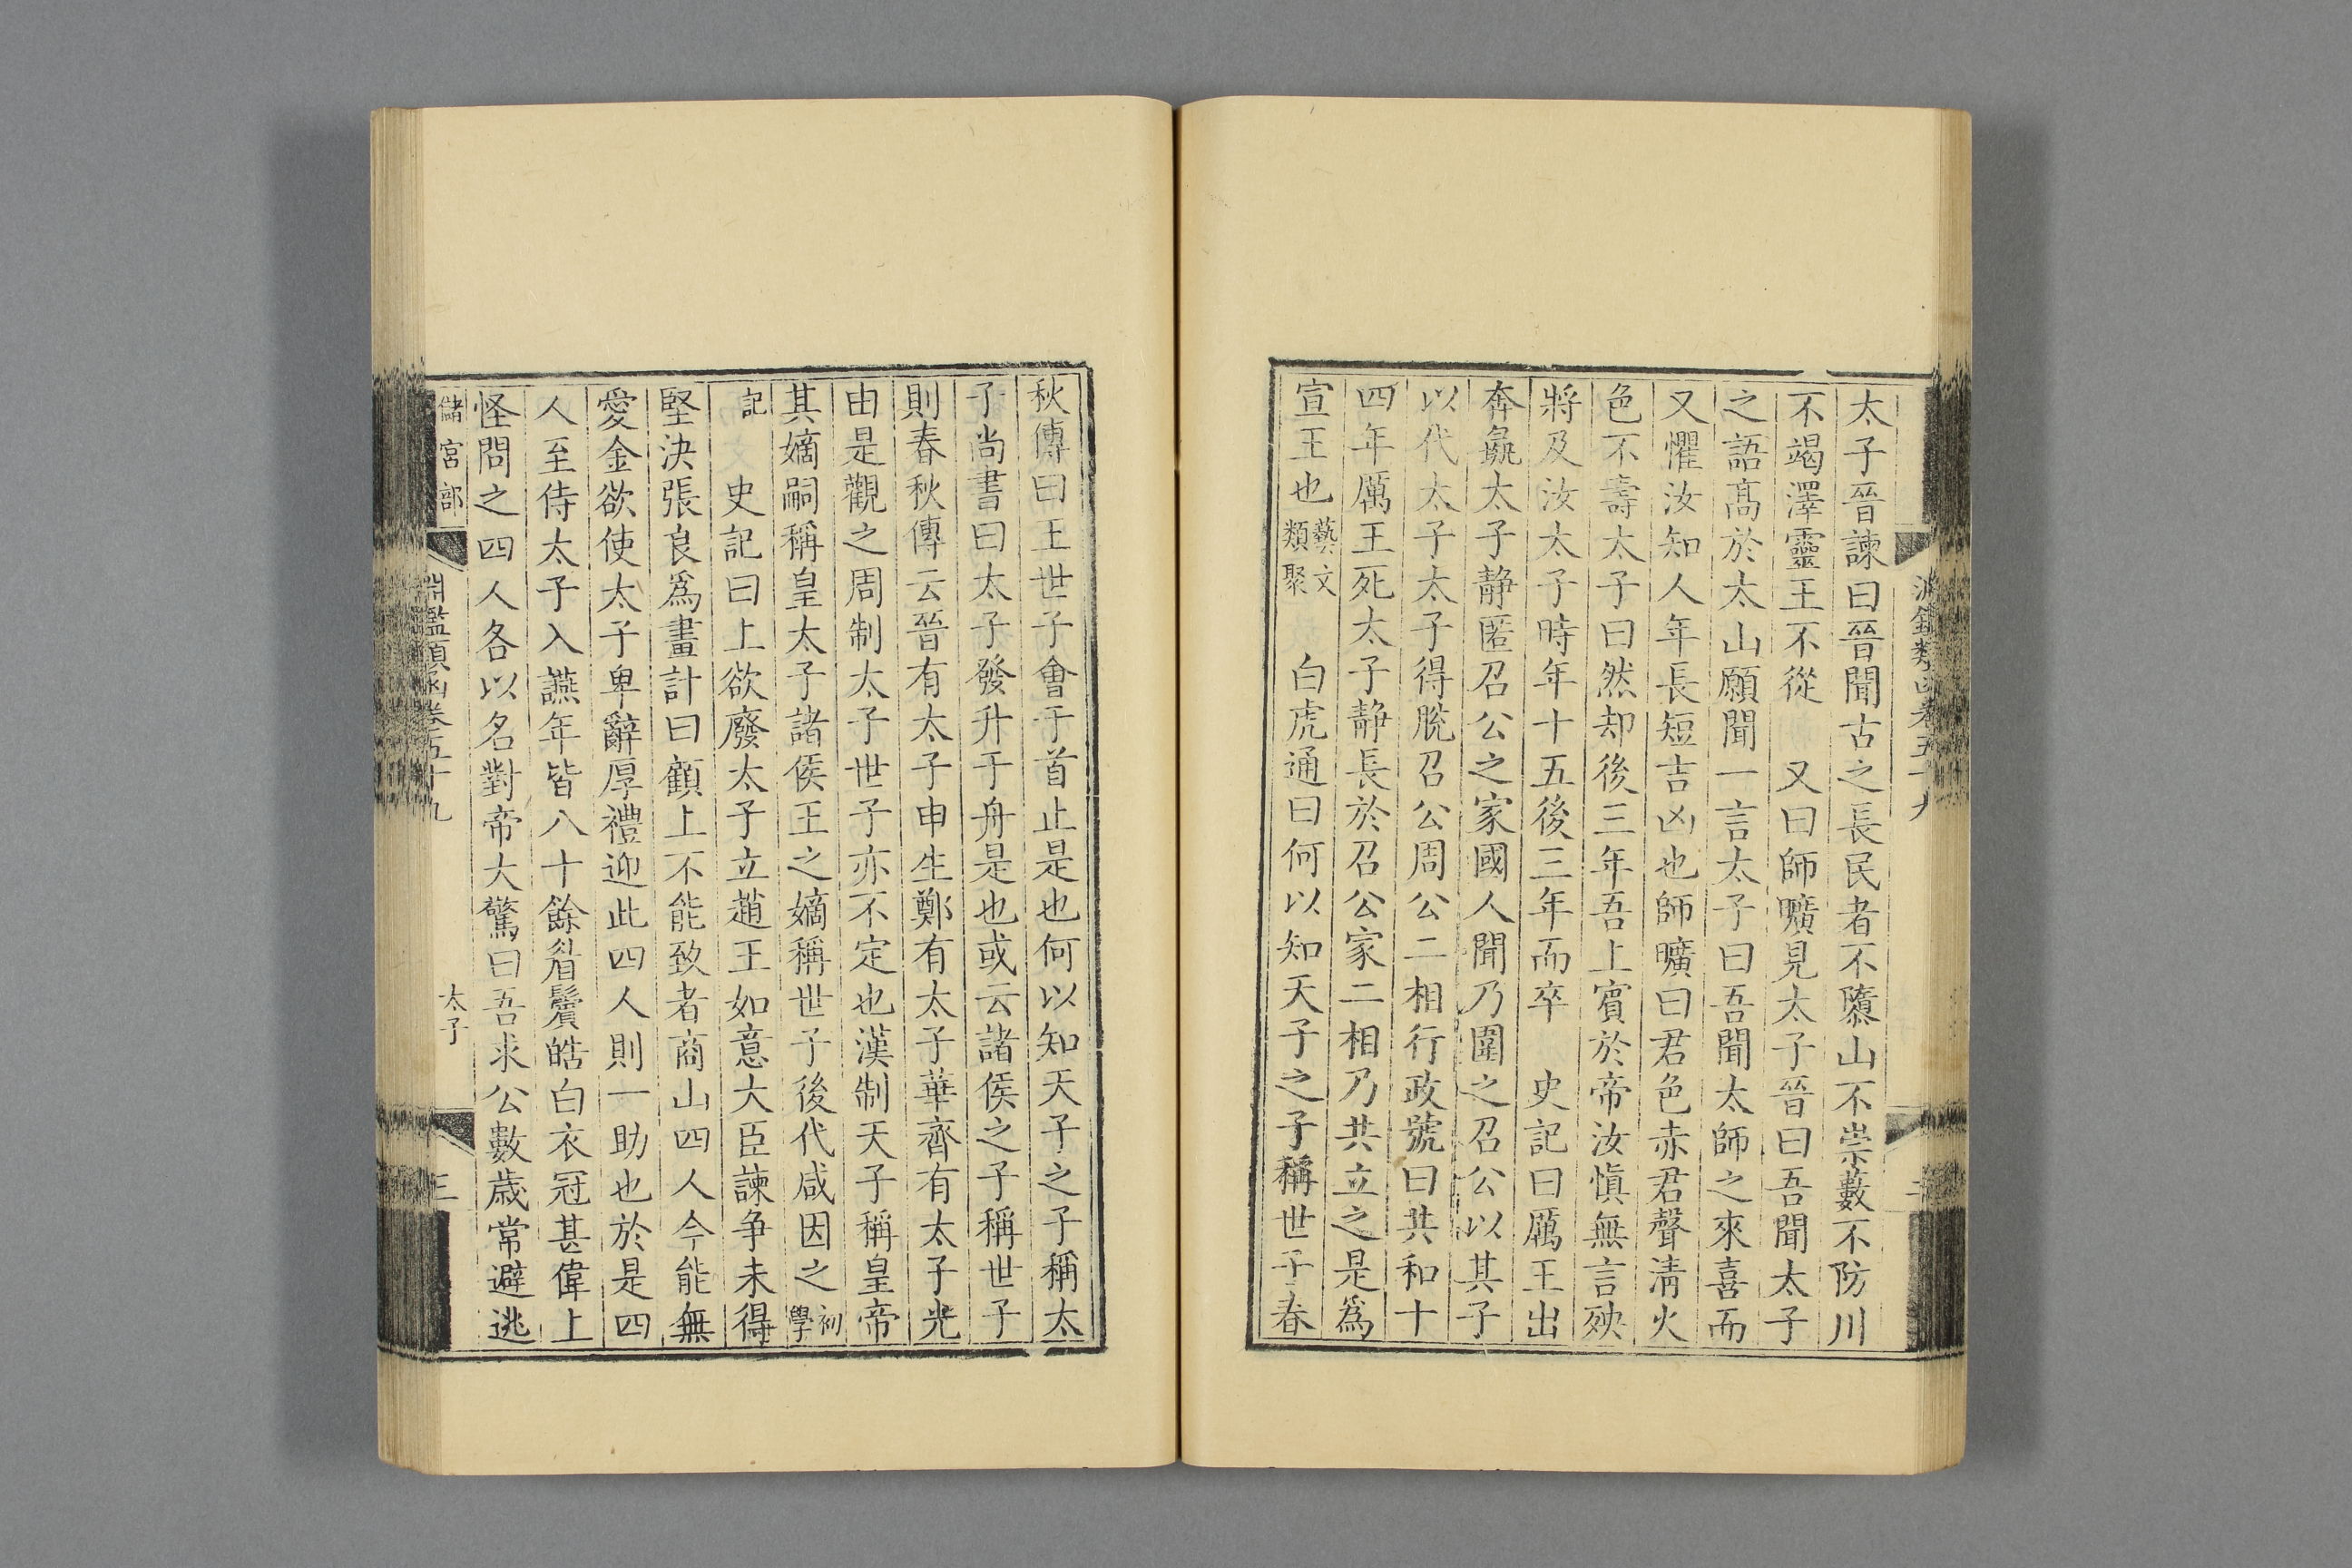 淵鑑類函卷五十九
太子晉諫曰晉聞古之長民者不隳山不崇藪不防川
不竭澤靈王不從　又曰師曠見太子晉曰吾聞太子
之語髙於太山願聞一言太子曰吾聞太師之來喜而
又懼汝知人年長短吉凶也師曠曰君色赤君聲淸火
色不壽太子曰然却後三年吾上賔於帝汝愼無言殃
將及汝太子時年十五後三年而卒　史記曰厲王出
奔彘太子静匿召公之家國人聞乃圍之召公以其子
以代太子太子得脫召公周公二相行政號曰共和十
四年厲王死太子靜長於召公家二相乃共立之是爲
宣王也藝文類聚　白虎通曰何以知天子之子稱世子春
秋傳曰王世子會于首止是也何以知天子之子稱太
子尚書曰太子發升于舟是也或云諸侯之子稱世子
則春秋傳云晉有太子申生鄭有太子華齊有太子光
由是觀之周制太子世子亦不定也漢制天子稱皇帝
其嫡嗣稱皇太子諸侯王之嫡稱世子後代咸因之初學
記　史記曰上欲廢太子立趙王如意大臣諫争未得
堅決張良爲畫計曰顧上不能致者商山四人今能無
愛金欲使太子卑辭厚禮迎此四人則一助也於是四
人至侍太子入讌年皆八十餘眉鬢皓白衣冠甚偉上
怪問之四人各以名對帝大驚曰吾求公數歲常避逃
儲宮部　淵鑑類函卷五十九　太子　三